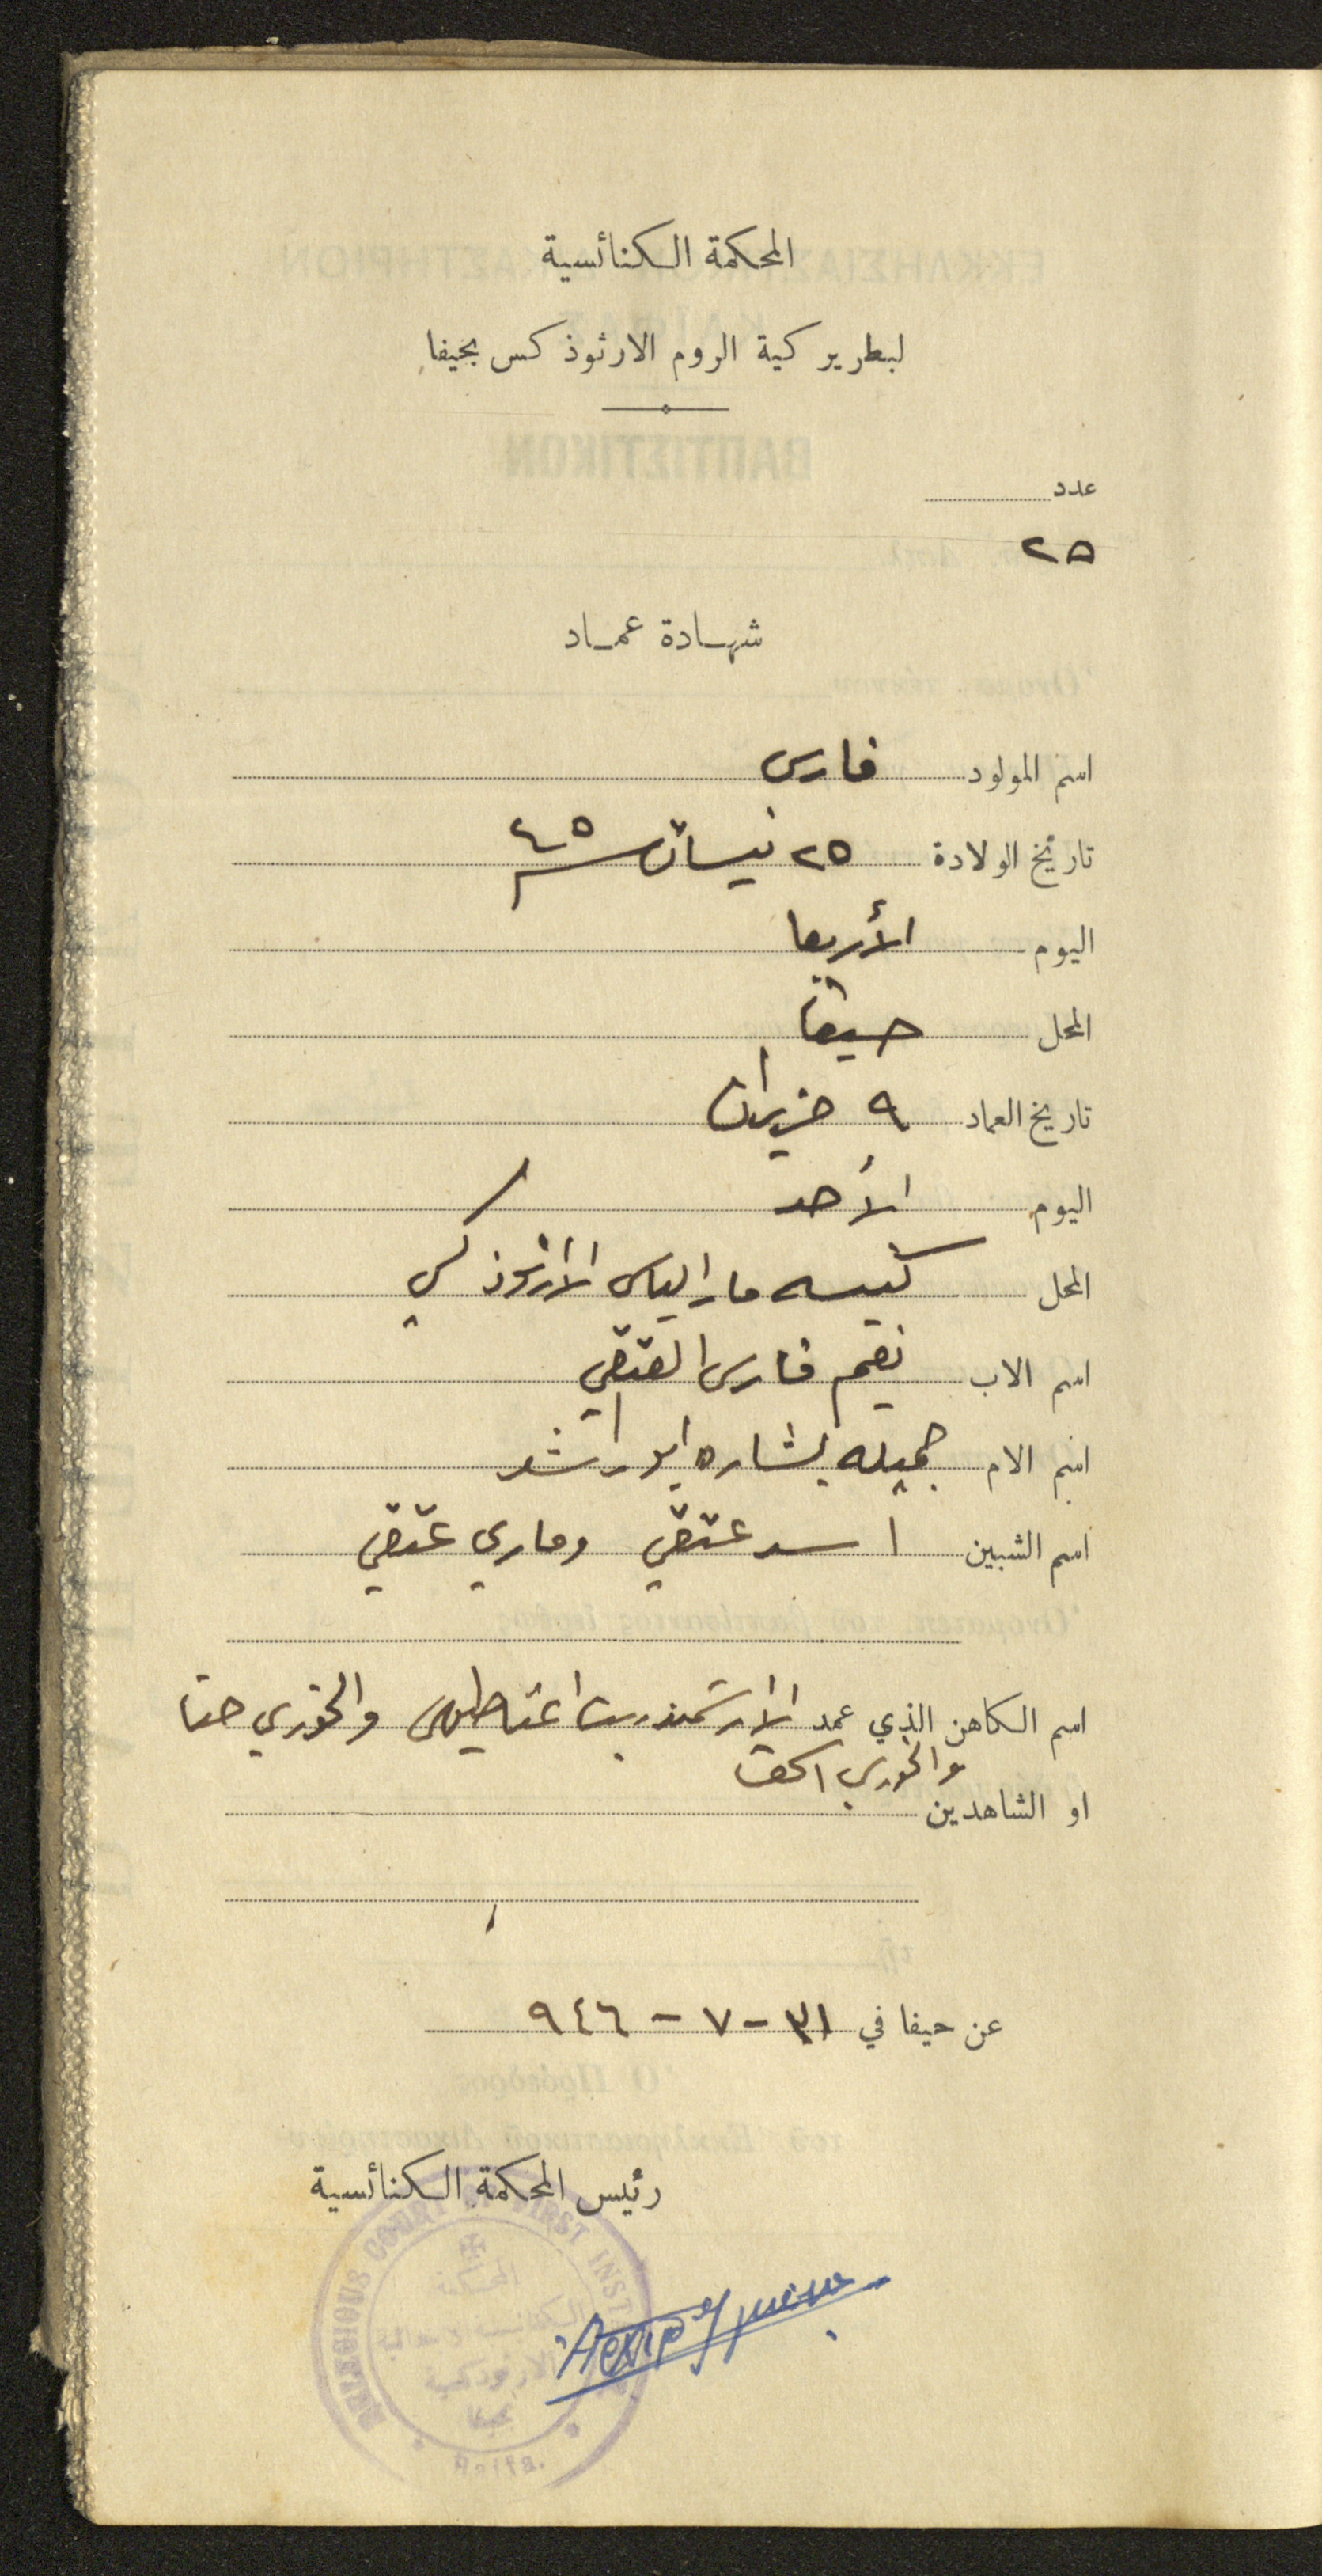 المحكمة الكنائسية
لبطريركية الروم الارثوذكس بحيفا
عدد
٢٥
شهادة عماد
اسم المولود فارس
تاريخ الولادة ٢٥ نيسان سنة ٤٥
اليوم الأربعا
المحل حيفا
تاريخ العماد ٩ حزيران
اليوم الأحد
المحل كنيسه مار الياس الأرثوذكسي
اسم الاب نعيم فارس العتقي
اسم الام جميله بشاره ابو راشد
اسم الشبين اسد عتقي وماري عتقي
اسم الكاهن الذي عمد الارشمندريت اغناطيوس والخوري حنا
والخوري اسحق
او الشاهدين
عن حيفا في ٣١ - ٧ - ٩٤٦
رئيس المحكمة الكنائسية
RELIGIOUS COURT FIRST INST
المحكمة
الكنائسية الابتدائية
الارثوذكسية
بحيفا
Haifa.